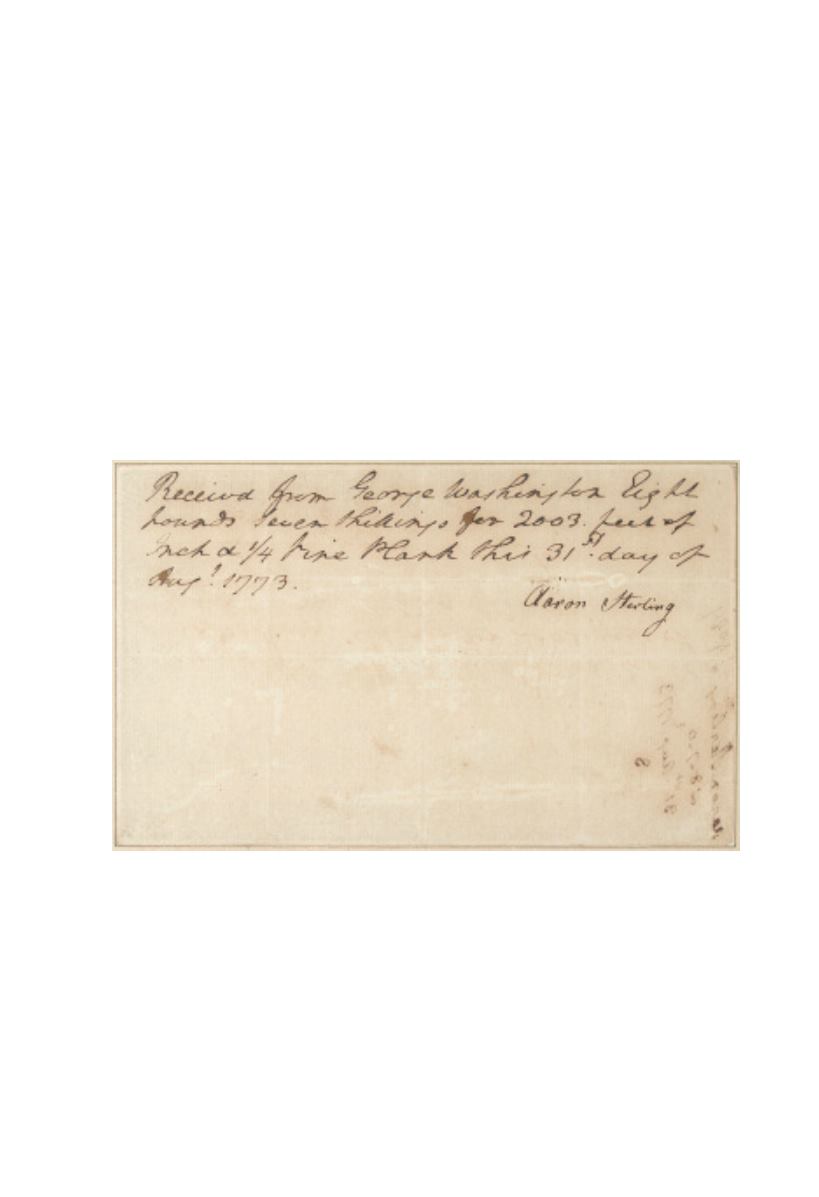 Received from George Washington Eight
pounds Seven Shillings for 2003. feet of
Inch & 1/4 Pine Plank this 31st. day of
Augt. 1773.
Aaron Sterling